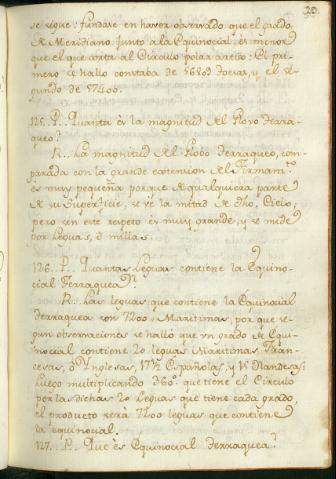 se sigue: fundase en haver observado que el grado
de Meridiano junto a la Equinocial, es menor
que el que corta al Circulo polar artico: El pri-
mero se hallo constaba de toesas, y el se-
gundo de 57400.
125. P. Quanta es la magnitud del Glovo Terra-
queo?
R. La magnitud del Globo Terraqueo, com-
parada con la grande extension del Firmam.to
es muy pequeña porque de qualquiera parte
de su superficie, se ve la mitad de dho, Cielo;
pero sin este respeto es muy grande, y se mide
por leguas, ò millas.
126. P. Quantas leguas contiene la Equino-
cial Terraquea?
R. Las leguas que contiene la Equinocial
Terraquea son 7200 Maritimas, por que se-
gun observaciones se hallò que un grado de Equi-
nocial contiene 20 leguas Maritimas Fran-
cesas, ò Ynglesas, 17½ Españolas, y 15 Olandesas;
luego multiplicando 360. que tiene el Circulo
por las dichas 20 leguas que tiene cada grado,
el producto serà 7200 leguas que contiene
la equinocial.
127. P. Que ès Equinocial Terraquea?